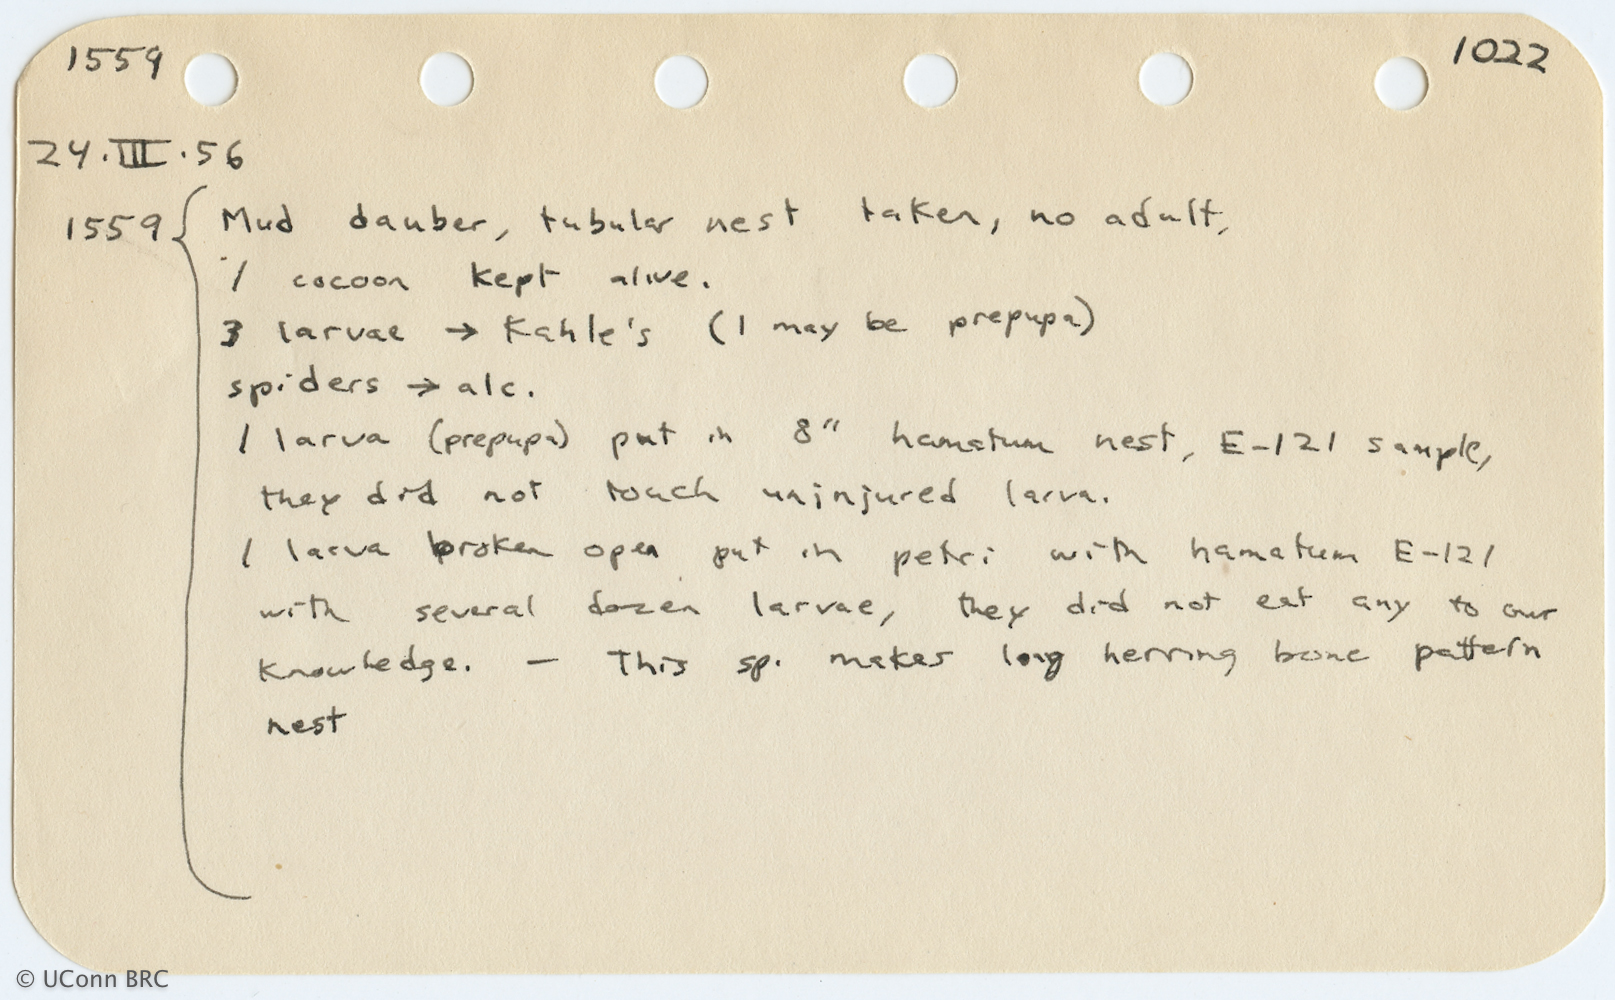 1559
1022
24.III.56
1559 { Mud dauber, tubular nest taken, no adult,
1 cocoon kept alive.
3 larvae → Kahle's (1 may be prepupa)
spiders → alc.
1 larva (prepupa) put in 8" hamatum nest, E-121 sample,
they did not touch uninjured larva.
1 larva broken open put in petri with hamatum E-121
with several dozen larvae, they did not eat any to our
knowledge. — This sp. makes long herring bone pattern
nest
© UConn BRC